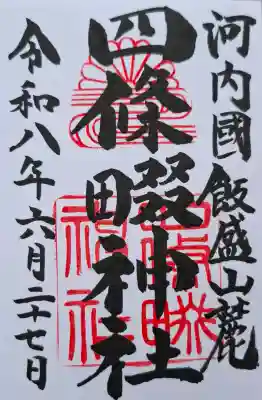 河内國飯盛山麓
四條畷神社
令和八年六月二十七日